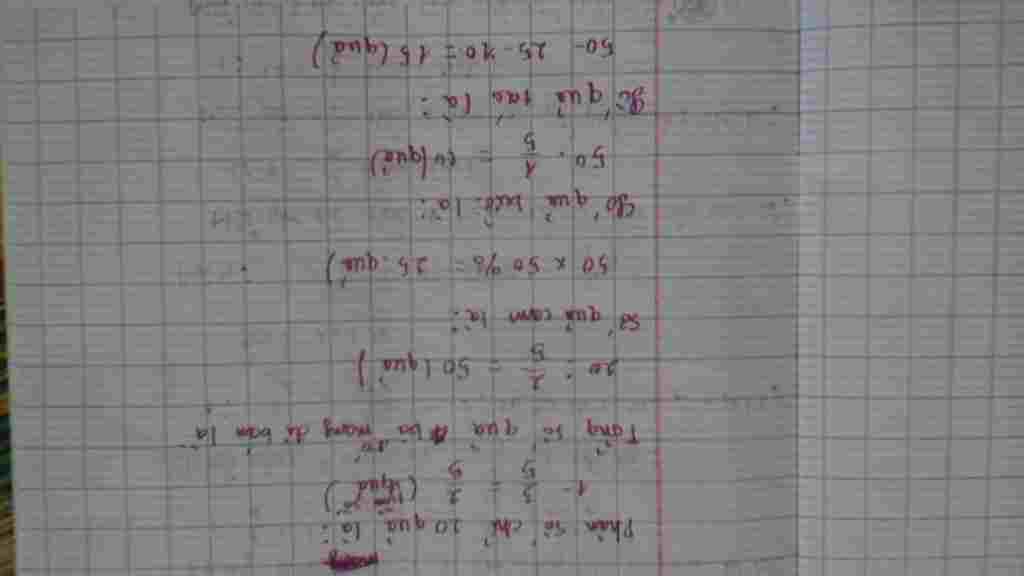 Phân số chỉ 20 quả là:
1 - 3/5 = 2/5 (số quả)
Tổng số quả bà mang đi bán là
20 : 2/5 = 50 (quả)
Số quả cam là:
50 x 50 % = 25 quả)
Số quả bưởi là:
50 . 1/5 = 10 (quả)
Số quả táo là:
50 - 25 - 10 = 15 (quả)